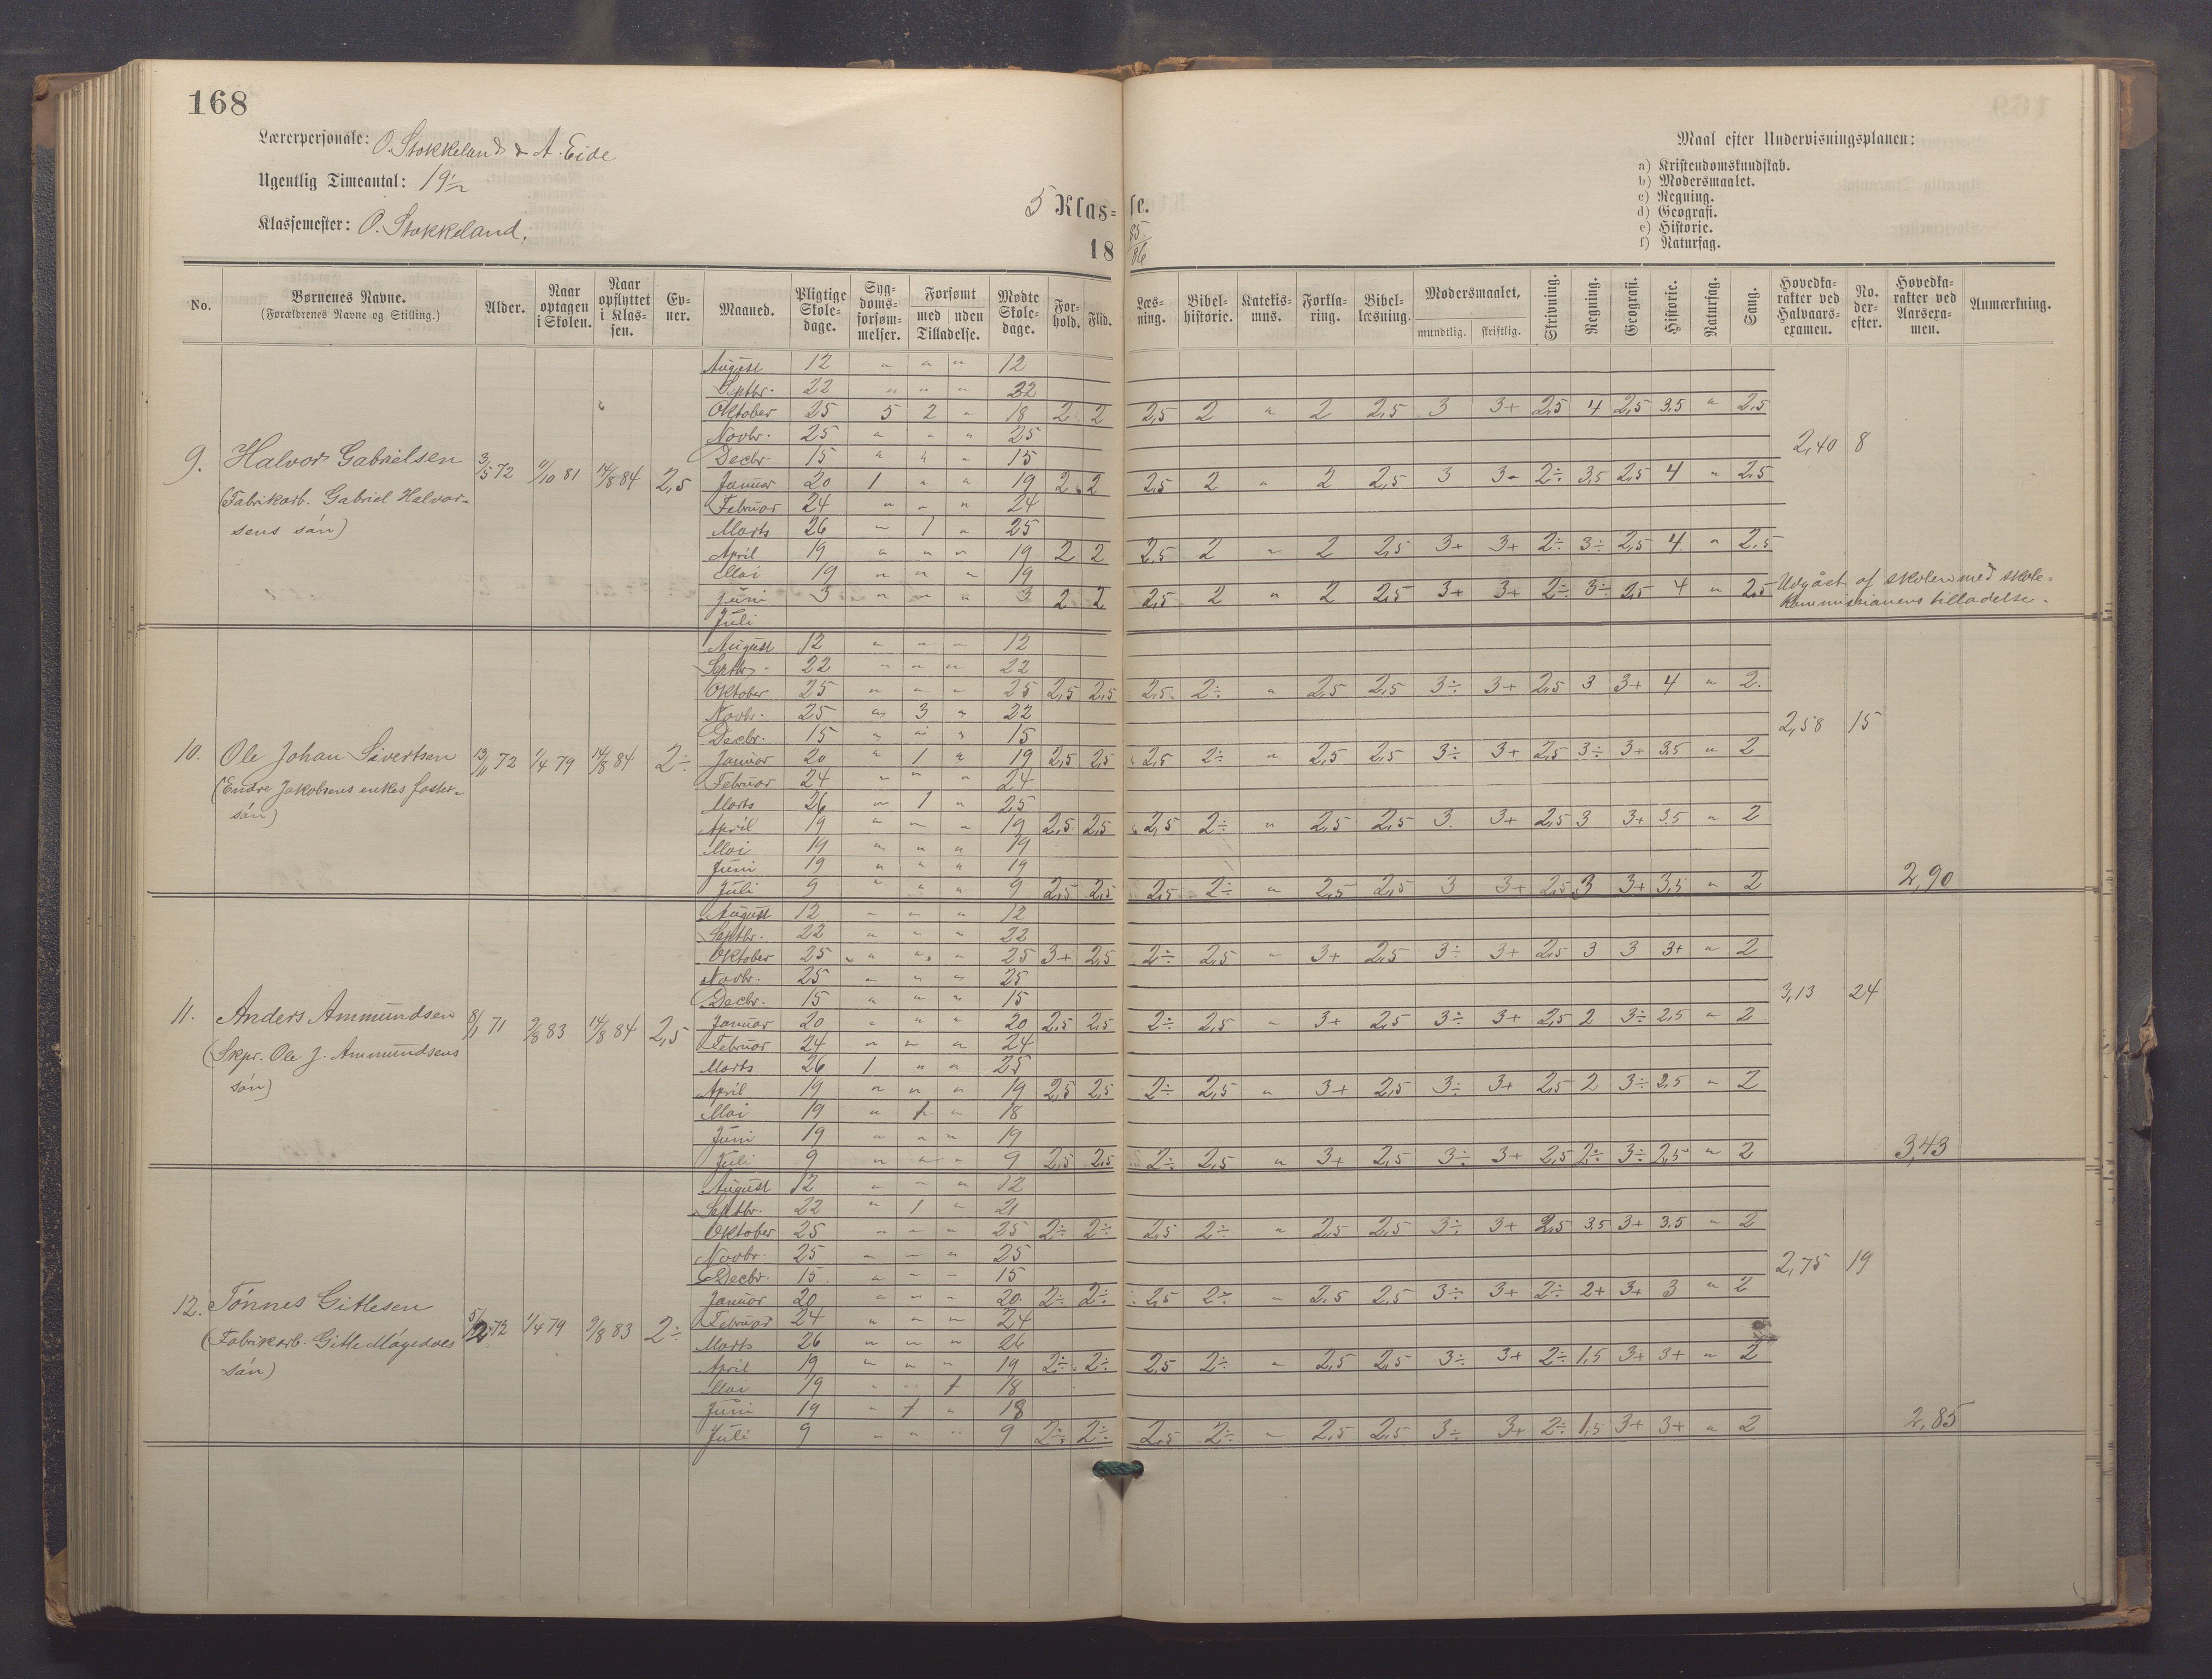 168
Lærerpersonale: O. Stokkeland & A. Eide
Ugentlig Timeantal: 19 1/2
Klassemester: O. Stokkeland.
5 Klas= se.
18 85/86
Maal efter Undervisningsplanen:
a) Kristendomskundskab.
b) Modersmaalet.
c) Regning.
d) Geografi.
e) Historie.
f) Naturfag.
No. Børnenes Navne. (Forældrenes Navne og Stilling.) Alder. Naar optagen i Skolen. Naar opflyttet i Klas- sen. Ev- ner. Maaned. Pligtige Skole- dage. Syg- doms- forsøm- melser. Forsømt med uden Tilladelse. Mødte Skole- dage. For- hold. Flid. Læs- ning. Bibel- historie. Katekis- mus. Forkla- ring. Bibel- læsning. Modersmaalet, mundtlig. skriftlig. Skrivning. Regning. Geografi. Historie. Naturfag. Sang. Hovedka- rakter ved Halvaars- examen. No. der- efter. Hovedka- rakter ved Aarsexa- men. Anmærkning.
August 12 " " " 12
Septbr. 22 " " " 22
Oktober 25 5 2 " 18 2 2 2,5 2 " 2 2,5 3 3+ 2,5 4 2,5 3,5 " 2,5
Novbr. 25 " " " 25
9. Halvor Gabrielsen 3/5 72 11/10 81 14/8 84 2,5 Decbr. 15 " " " 15 2,40 8
(Fabrikarb. Gabriel Halvor- Januar 20 1 " " 19 2 2 2,5 2 " 2 2,5 3 3- 2÷ 3,5 2,5 4 " 2,5
sens søn) Februar 24 " " " 24
Marts 26 " 1 " 25
April 19 " " " 19 2 2 2,5 2 " 2 2,5 3+ 3+ 2÷ 3÷ 2,5 4 " 2,5
Mai 19 " " " 19
Juni 3 " " " 3 2 2 2,5 2 " 2 2,5 3+ 3+ 2÷ 3÷ 2,5 4 " 2,5 Udgået af skolen med skole-
Juli kommissionens tilladelse.
August 12 " " " 12
Septbr. 22 " " " 22
Oktober 25 " " " 25 2,5 2,5 2,5 2÷ " 2,5 2,5 3÷ 3+ 2,5 3 3+ 4 " 2
Novbr. 25 " 3 " 22
Decbr. 15 " " " 15 2,58 15
10. Ole Johan Sivertsen 13/11 72 1/4 79 14/8 84 2÷ Januar 20 " 1 " 19 2,5 2,5 2,5 2÷ " 2,5 2,5 3÷ 3+ 2,5 3÷ 3+ 3,5 " 2
(Endre Jakobsens enkes foster- Februar 24 " " " 24
søn) Marts 26 " 1 " 25
April 19 " " " 19 2,5 2,5 2,5 2÷ " 2,5 2,5 3 3+ 2,5 3 3+ 3,5 " 2
Mai 19 " " " 19
Juni 19 " " " 19
Juli 9 " " " 9 2,5 2,5 2,5 2÷ " 2,5 2,5 3 3+ 2,5 3 3+ 3,5 " 2 2,90
August 12 " " " 12
Septbr. 22 " " " 22
Oktober 25 " " " 25 3+ 2,5 2÷ 2,5 " 3+ 2,5 3÷ 3+ 2,5 3 3 3+ " 2
Novbr. 25 " " " 25
Decbr. 15 " " " 15 3,13 24
11. Anders Ammundsen 8/1 71 9/8 83 14/8 84 2,5 Januar 20 " " " 20 2,5 2,5 2÷ 2,5 " 3+ 2,5 3÷ 3+ 2,5 2 3÷ 2,5 " 2
(Skpr. Ole J. Ammundsens Februar 24 " " " 24
søn) Marts 26 1 " " 25
April 19 " " " 19 2,5 2,5 2÷ 2,5 " 3+ 2,5 3÷ 3+ 2,5 2 3÷ 2,5 " 2
Mai 19 " 1 " 18
Juni 19 " " " 19
Juli 9 " " " 9 2,5 2,5 2÷ 2,5 " 3+ 2,5 3÷ 3+ 2,5 2÷ 3÷ 2,5 " 2 3,43
August 12 " " " 12
Septbr. 22 " 1 " 21
Oktober 25 " " " 25 2÷ 2÷ 2,5 2÷ " 2,5 2,5 3÷ 3+ 2,5 3,5 3+ 3,5 " 2
Novbr. 25 " " " 25
Decbr. 15 " " " 15 2,75 19
12. Tønnes Gitlesen 5/2 72 1/4 79 9/8 83 2÷ Januar 20 " " " 20 2÷ 2÷ 2,5 2÷ " 2,5 2,5 3÷ 3+ 2÷ 2+ 3+ 3 " 2
(Fabrikarb. Gitle Møgedaes Februar 24 " " " 24
søn) Marts 26 " " " 26
April 19 " " " 19 2÷ 2÷ 2,5 2÷ " 2,5 2,5 3÷ 3+ 2÷ 1,5 3+ 3+ " 2
Mai 19 " " 1 18
Juni 19 " 1 " 18
Juli 9 " " " 9 2÷ 2÷ 2,5 2÷ " 2,5 2,5 3÷ 3+ 2÷ 1,5 3+ 3+ " 2 2,85